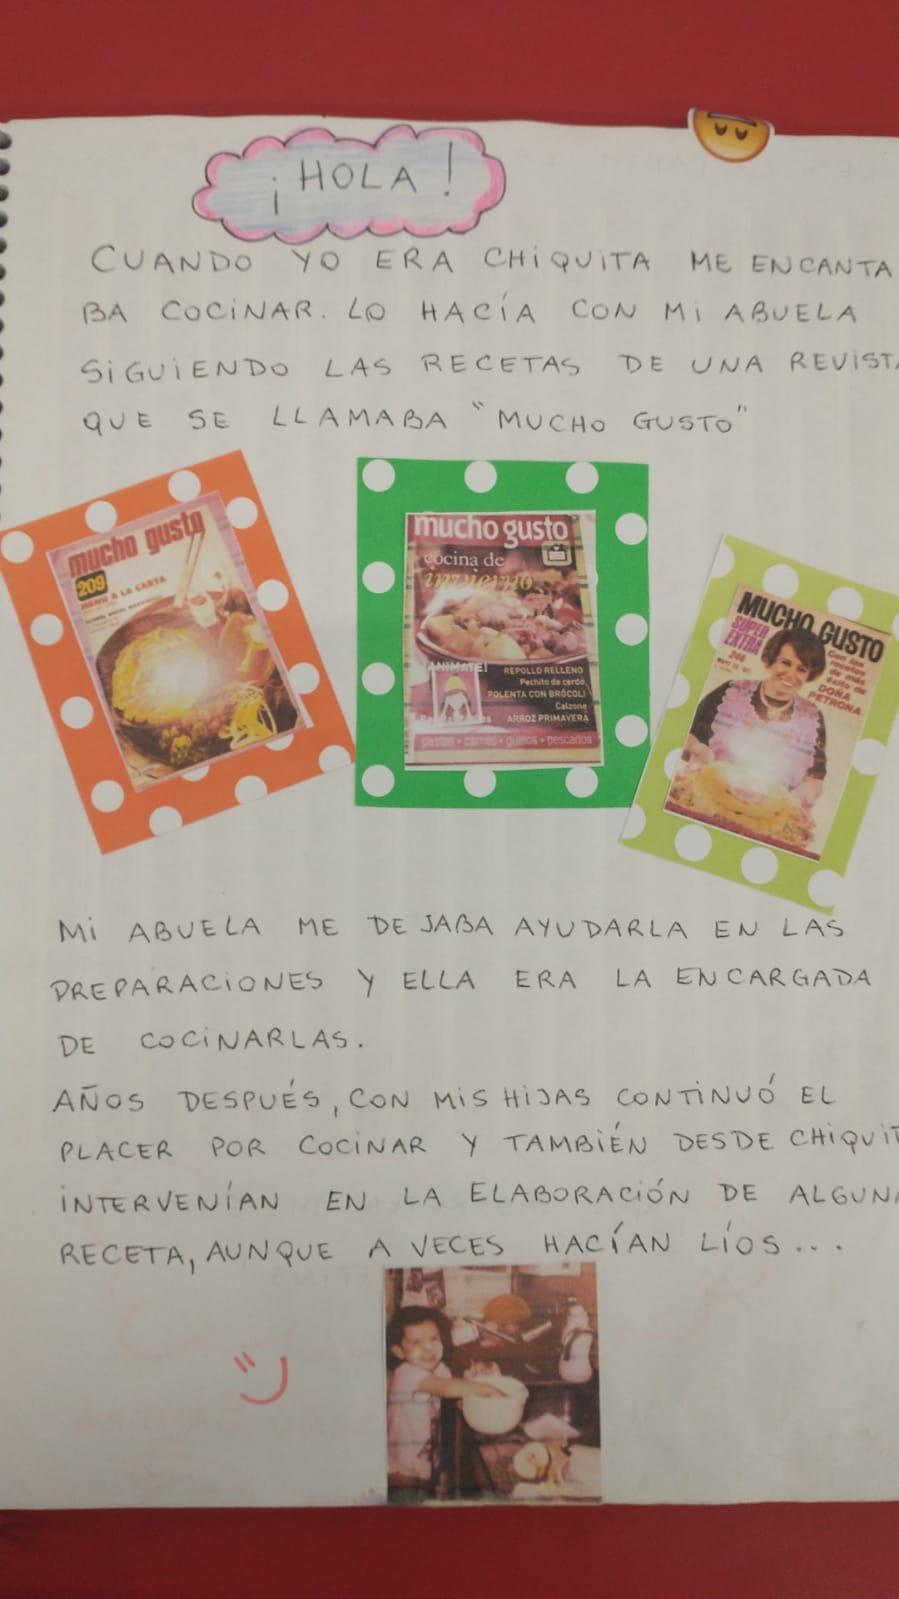 ¡HOLA!
CUANDO YO ERA CHIQUITA ME ENCANTA
BA COCINAR. LO HACÍA CON MI ABUELA
SIGUIENDO LAS RECETAS DE UNA REVISTA
QUE SE LLAMABA "MUCHO GUSTO"
mucho gusto
209
MENU A LA CARTA
mucho gusto
cocina de
invierno
¡ANIMATE!
REPOLLO RELLENO
Pechito de cerdo
POLENTA CON BRÓCOLI
Calzone
ARROZ PRIMAVERA
pastas • carnes • guisos • pescados
MUCHO GUSTO
SUPER
EXTRA
Con las
recetas
de más
éxito de
DOÑA
PETRONA
MI ABUELA ME DEJABA AYUDARLA EN LAS
PREPARACIONES Y ELLA ERA LA ENCARGADA
DE COCINARLAS.
AÑOS DESPUÉS, CON MIS HIJAS CONTINUÓ EL
PLACER POR COCINAR Y TAMBIÉN DESDE CHIQUIT
INTERVENÍAN EN LA ELABORACIÓN DE ALGUNA
RECETA, AUNQUE A VECES HACÍAN LÍOS...